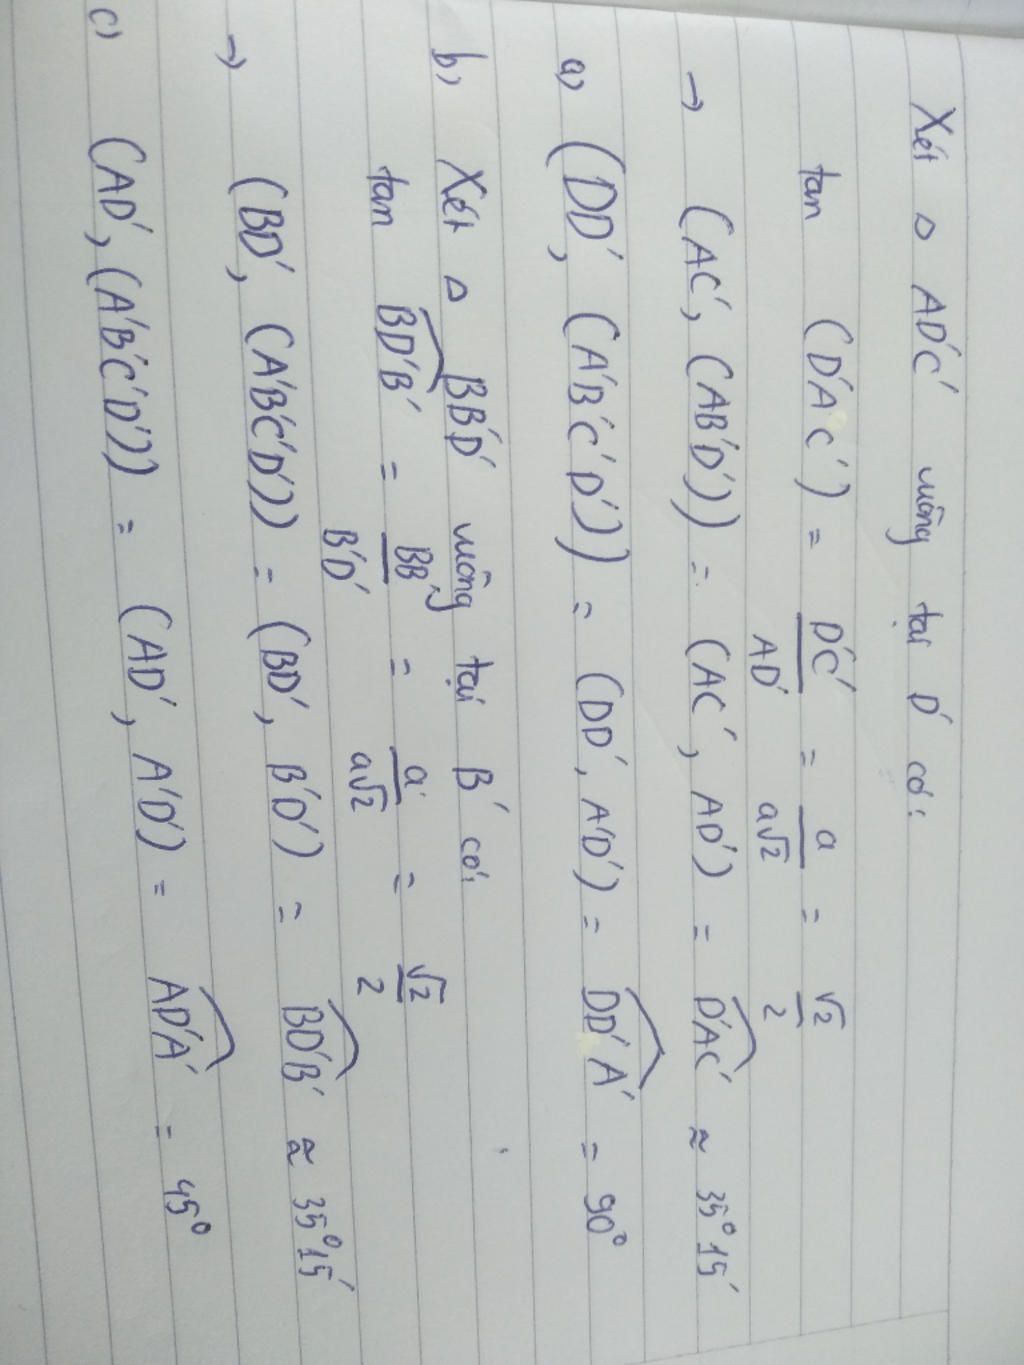 Xét △ AD'C' vuông tại D' có:
tan (D'AC') = D'C'/AD' = a/a√2 = √2/2
→ (AC', (AB'D')) = (AC', AD') = D'AC' ≈ 35°15'
a) (DD', (A'B'C'D')) = (DD', A'D') = DD'A' = 90°
b) Xét △ BB'D' vuông tại B' có:
tan BD'B' = BB'/B'D' = a/a√2 = √2/2
→ (BD', (A'B'C'D')) = (BD', B'D') = BD'B' ≈ 35°15'
c) (AD', (A'B'C'D')) = (AD', A'D') = AD'A' = 45°